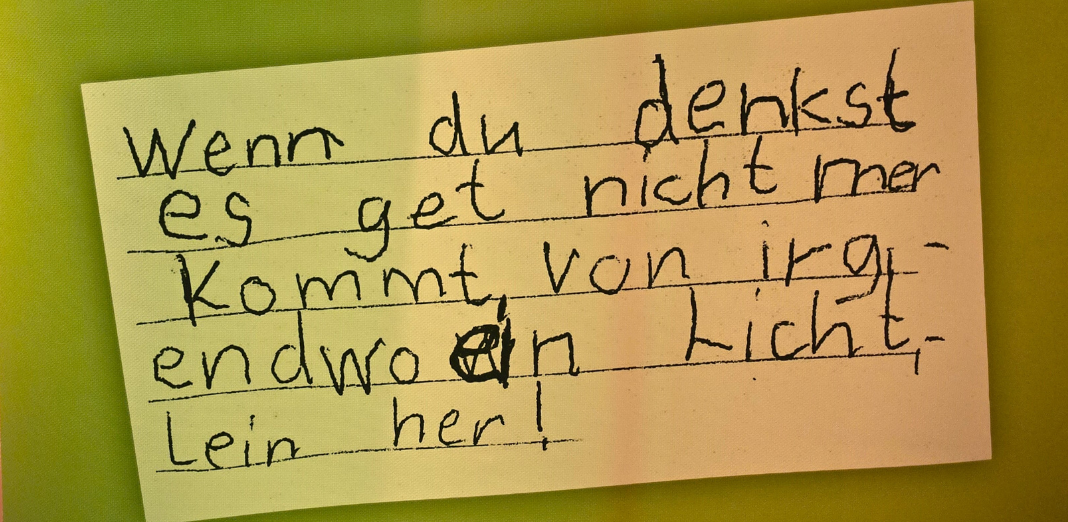 Wenn du denkst
es get nicht mer
kommt von irg-
endwo ein Licht-
lein her!